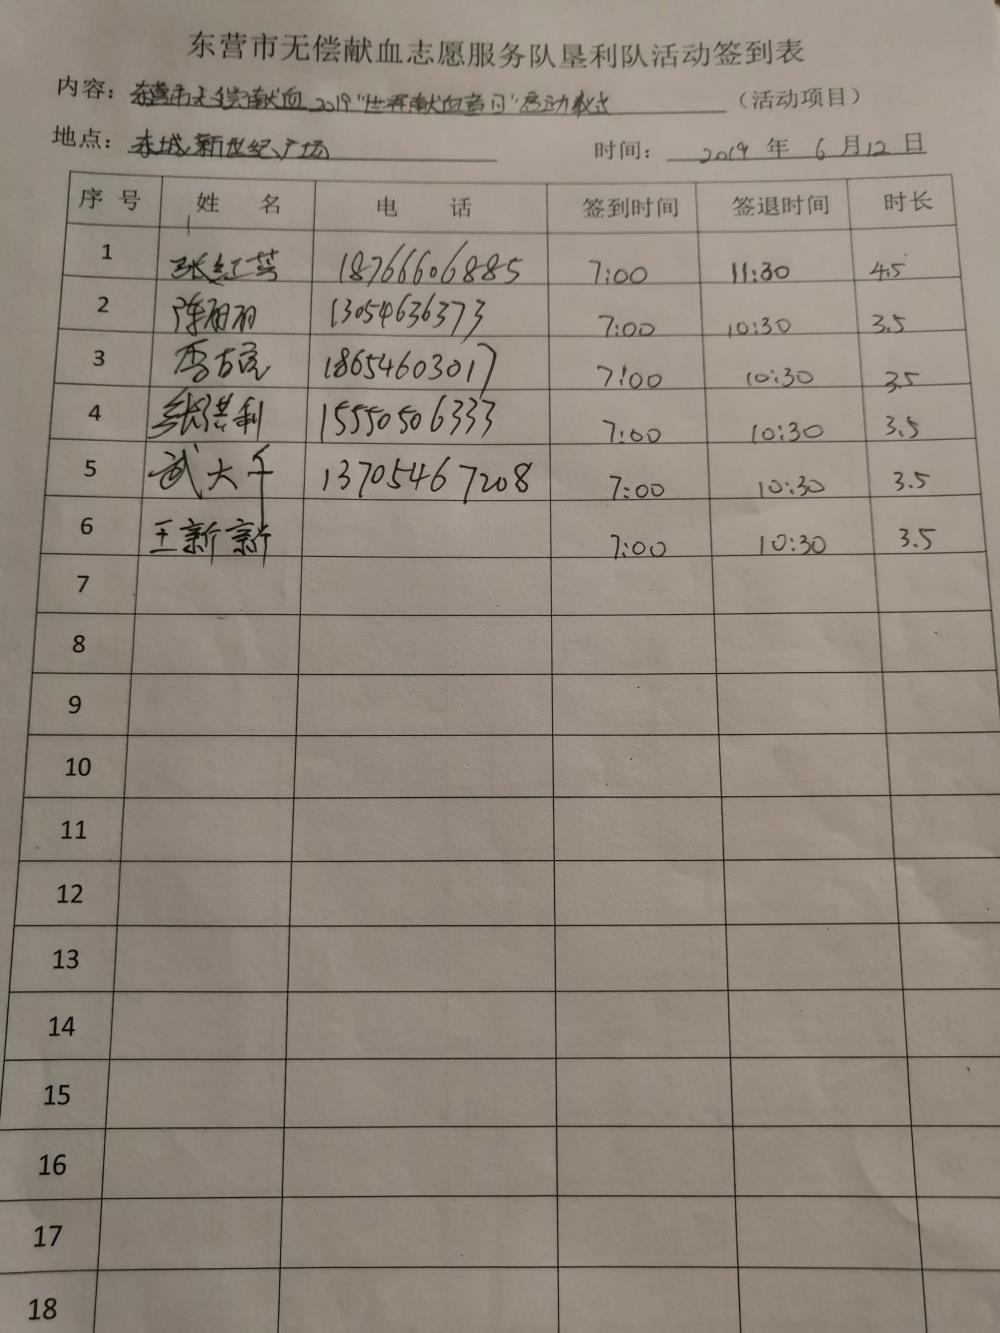 东营市无偿献血志愿服务队垦利队活动签到表
内容：东营市无偿献血2019"世界献血者日"启动仪式（活动项目）
地点：东城新世纪广场 时间：2019年6月12日
序号 姓名 电话 签到时间 签退时间 时长
1 张红 18766606885 7:00 11:30 4.5
2 陈丽丽 13054636373 7:00 10:30 3.5
3 李 18654603017 7:00 10:30 3.5
4 张洪利 15550506333 7:00 10:30 3.5
5 武大千 13705467208 7:00 10:30 3.5
6 王新新 7:00 10:30 3.5
7
8
9
10
11
12
13
14
15
16
17
18